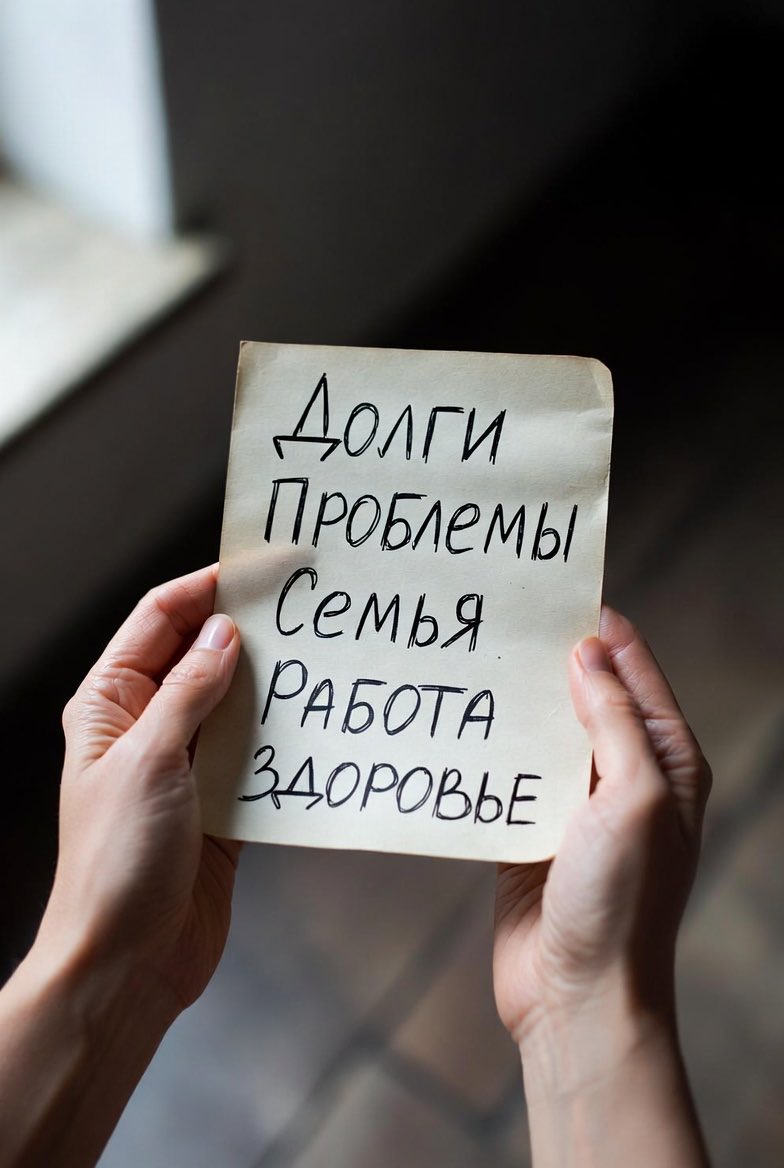 Долги
Проблемы
Семья
Работа
Здоровье